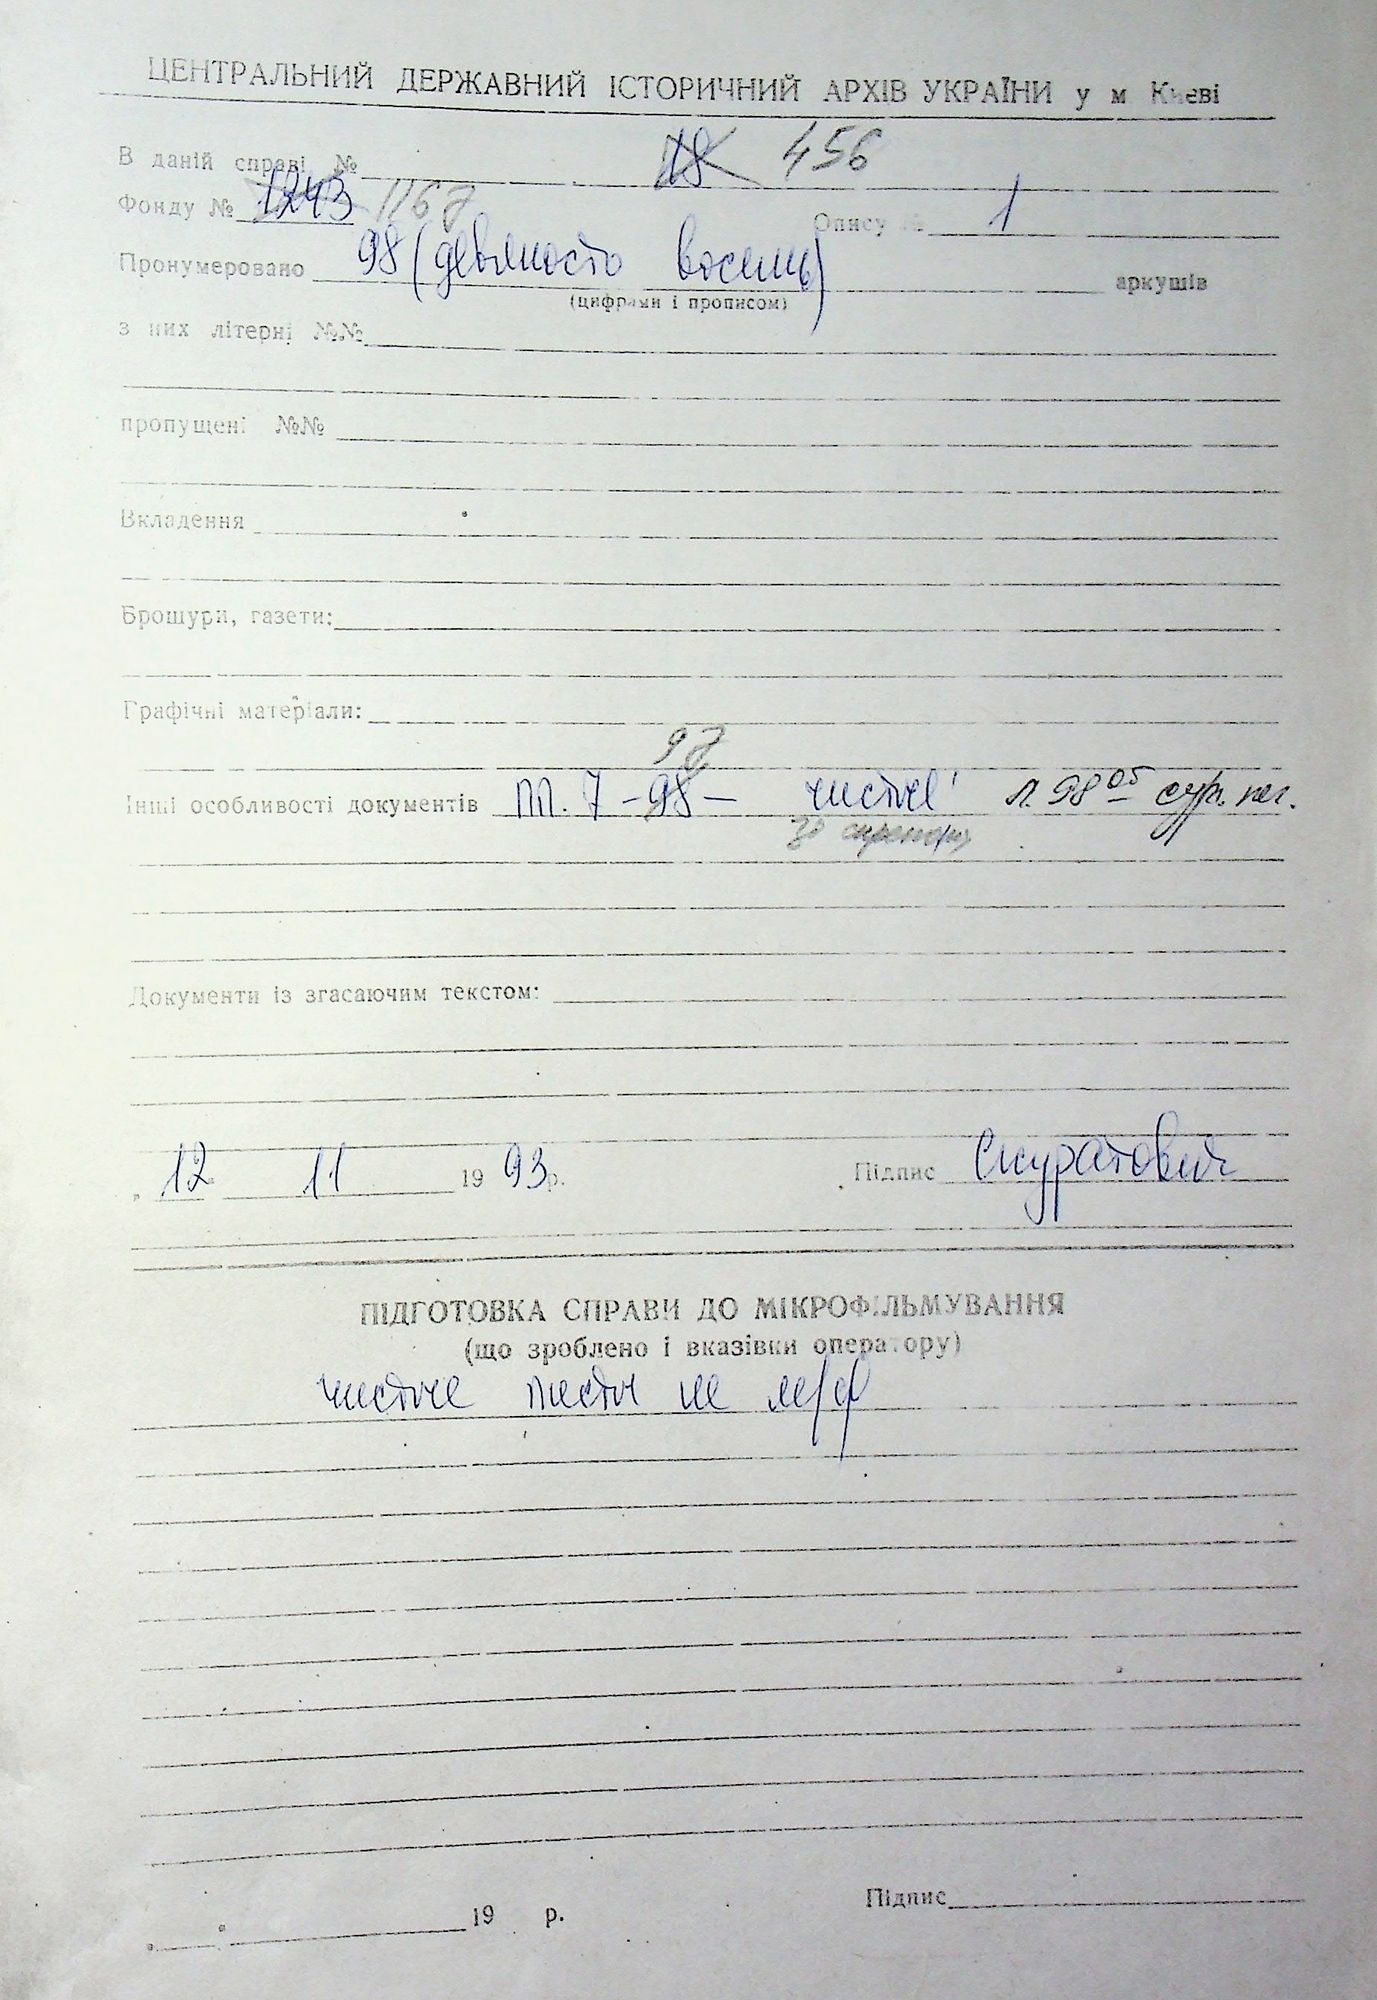 ЦЕНТРАЛЬНИЙ ДЕРЖАВНИЙ ІСТОРИЧНИЙ АРХІВ УКРАЇНИ у м Києві
В даній справі № 18 456
Фонду № 1243 1167 Опису № 1
Пронумеровано 98 (девяносто восемь) аркушів
(цифрами і прописом)
з них літерні №№
пропущені №№
Вкладення
Брошури, газети:
Графічні матеріали:
97
Інші особливості документів лл. 7 – 98 – чистые л. 98 об
Документи із згасаючим текстом:
„ 12 " 11 19 93 р. Підпис Скуратович
ПІДГОТОВКА СПРАВИ ДО МІКРОФІЛЬМУВАННЯ
(що зроблено і вказівки оператору)
чистые листы не м/ф
„ " 19 р. Підпис